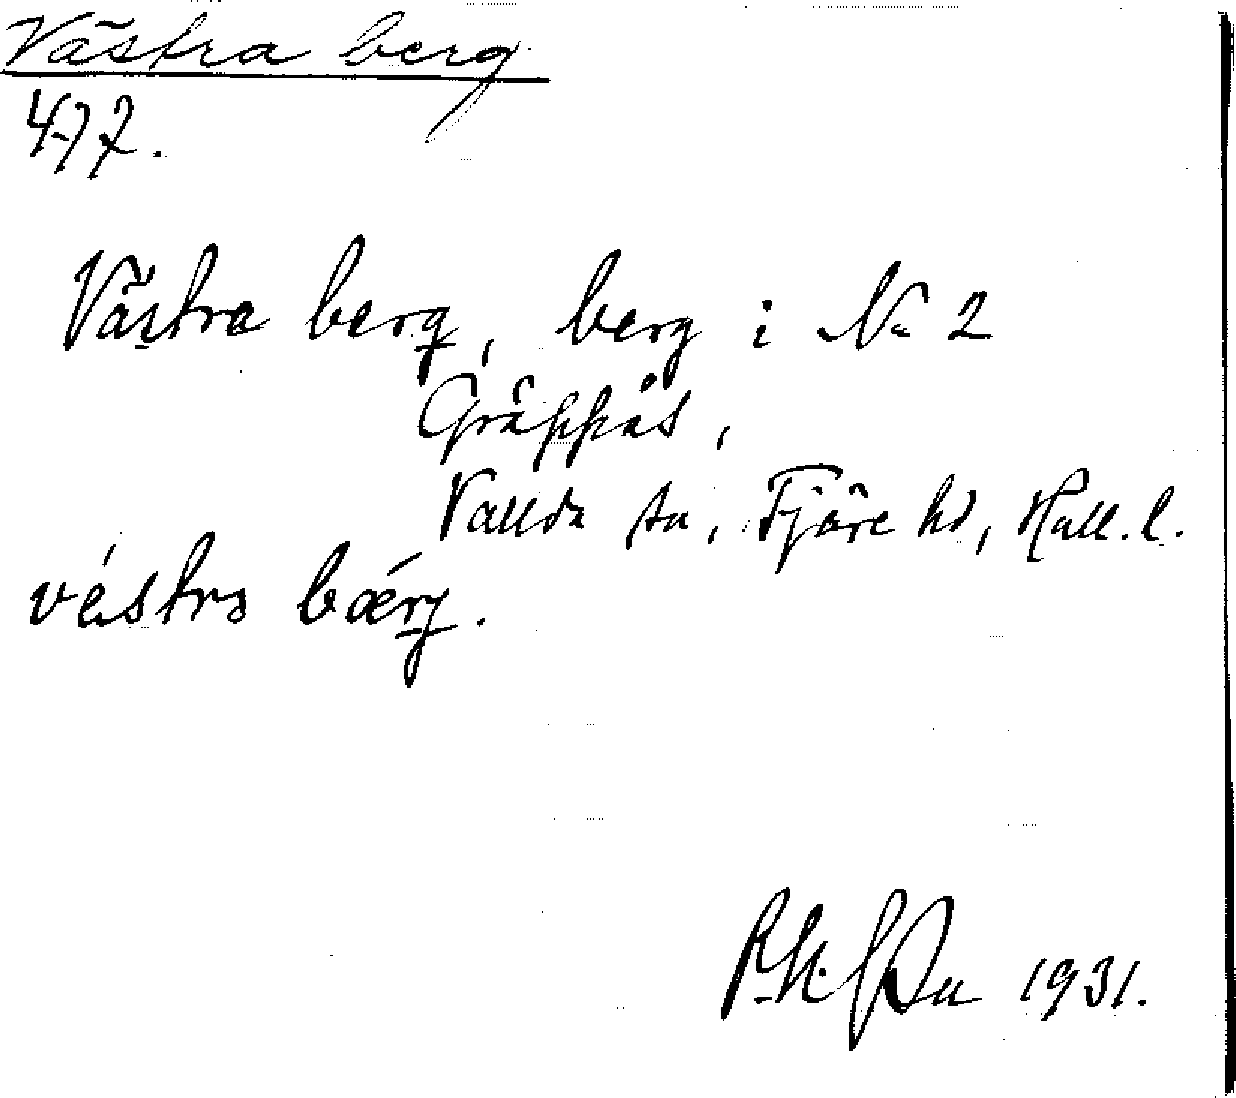 Västra berg
477.
Västra berg, berg i No 2
Gräppås,
Vallda sn, Fjäre hd, Hall. l.
västra bærg.
1931.